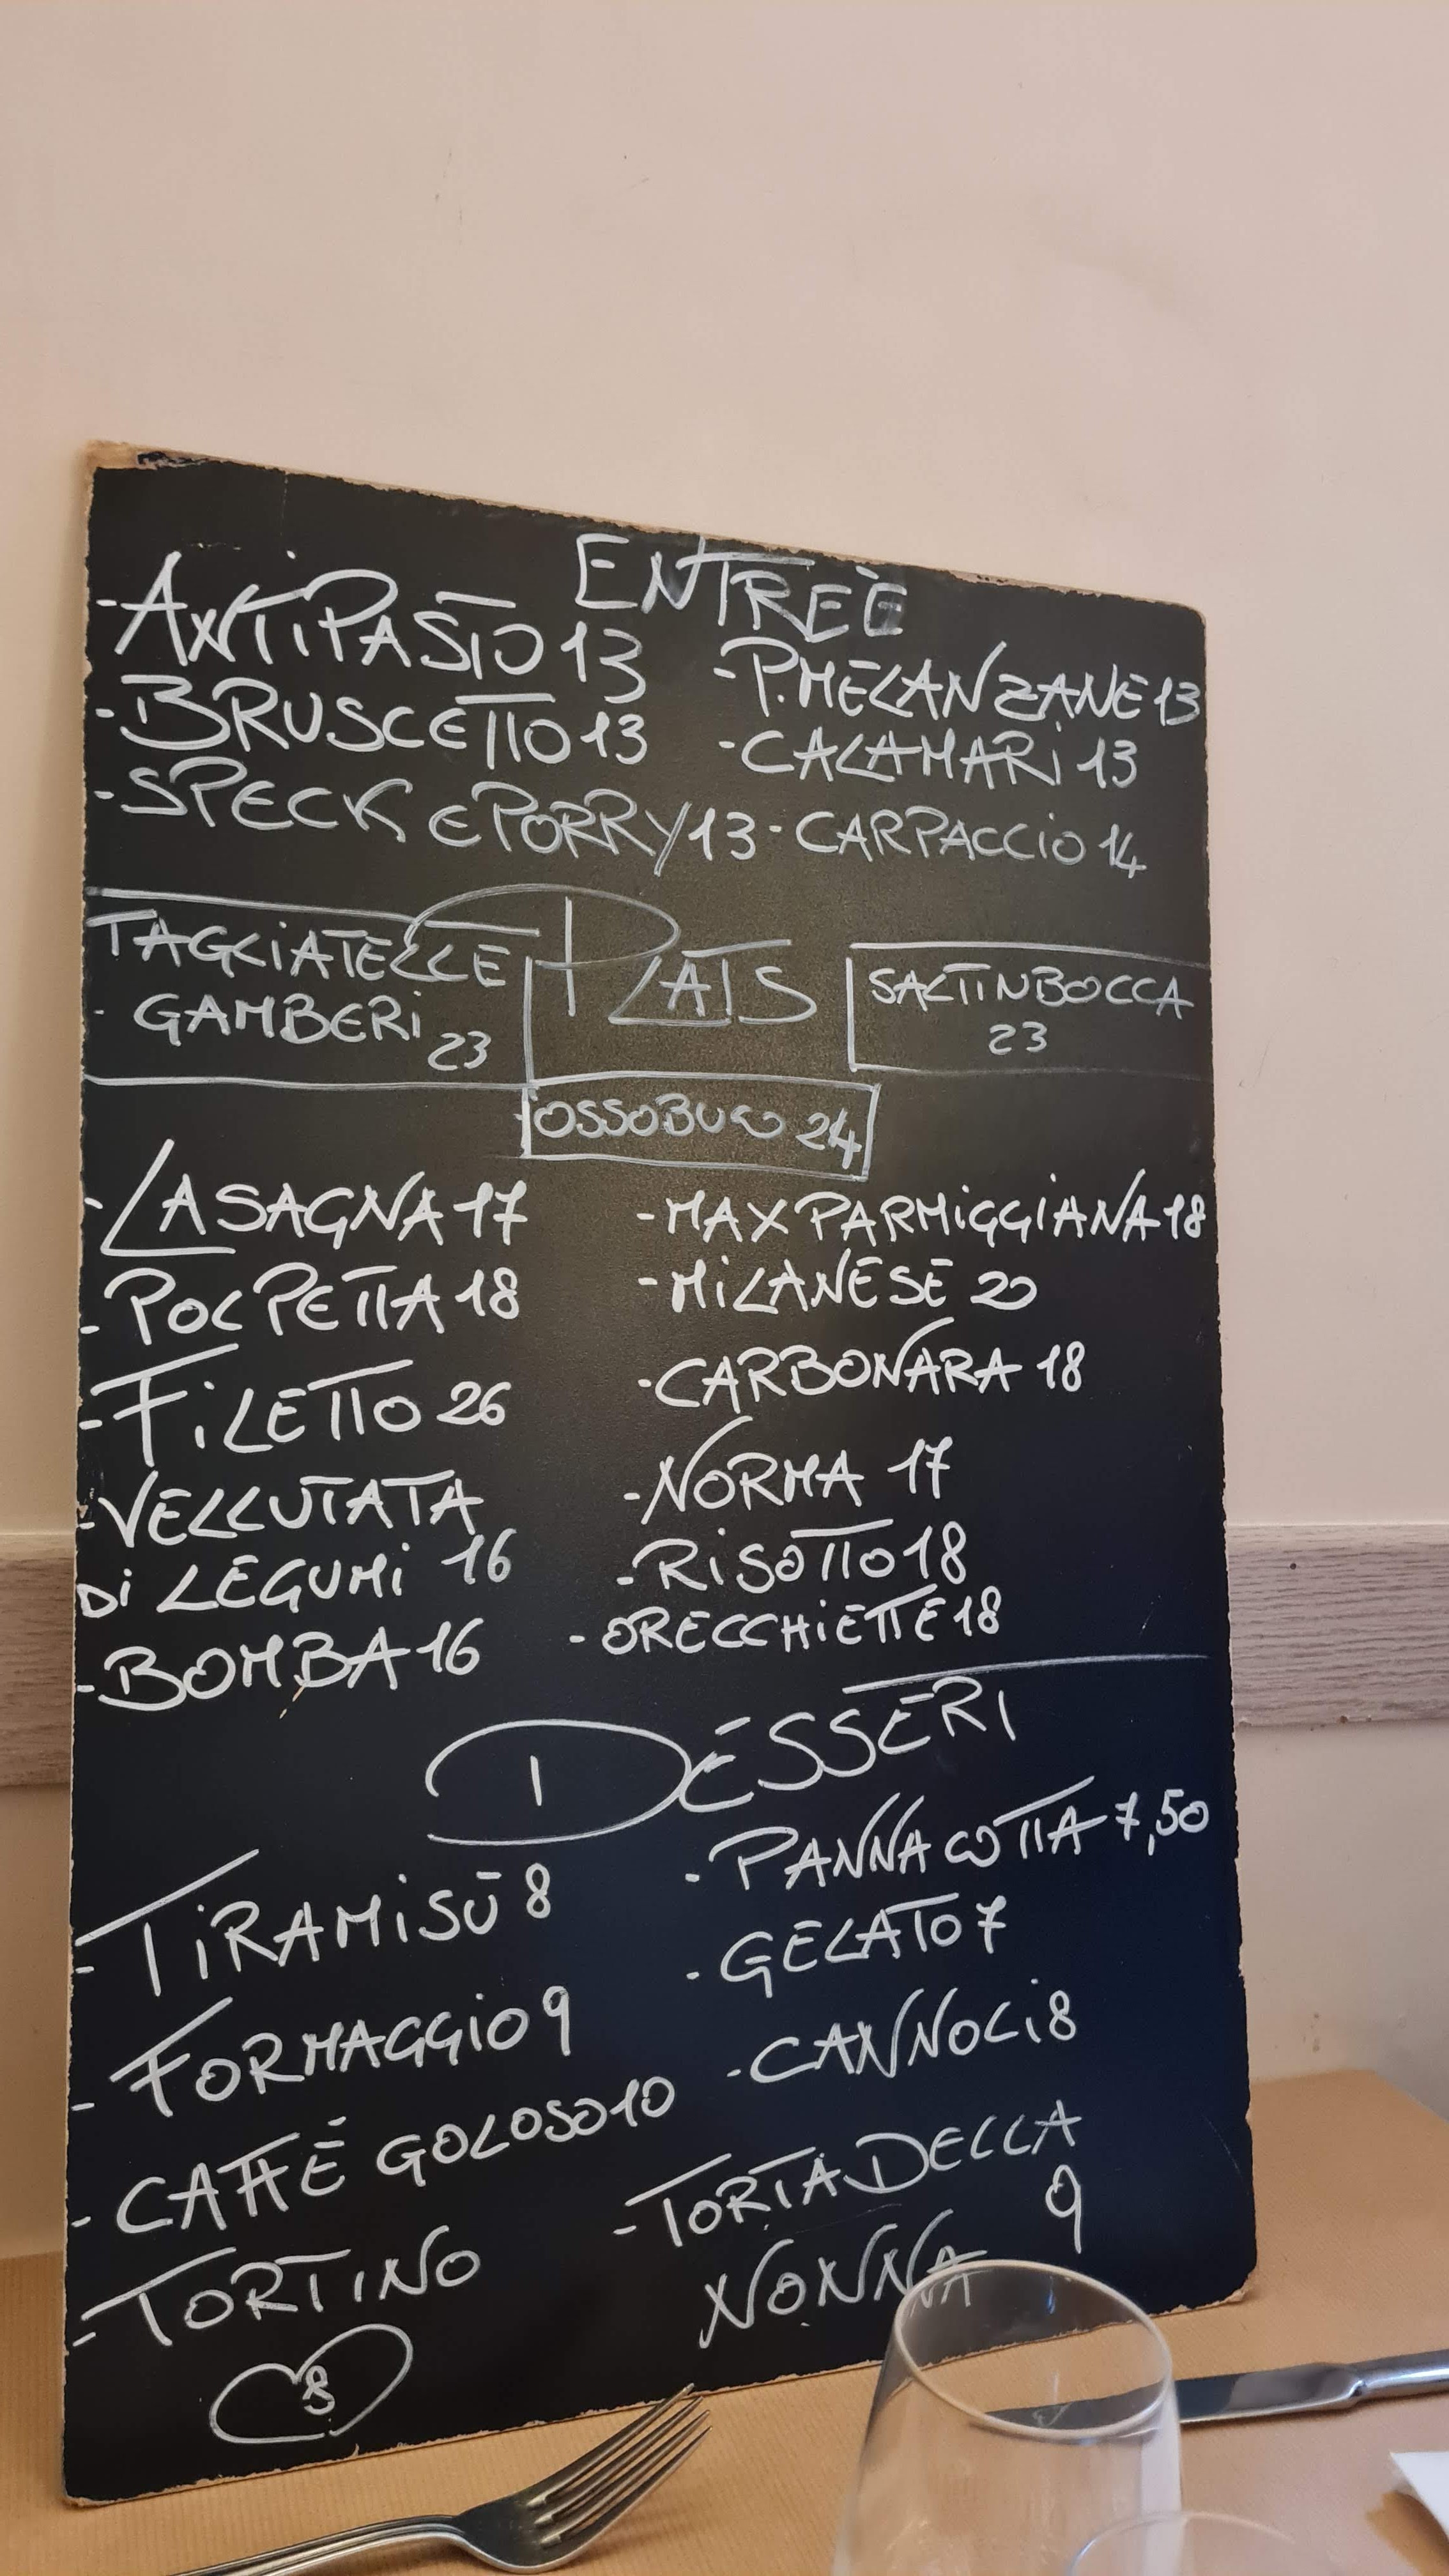 ENTREÈ
- ANTIPASTO 13
- BRUSCETTO 13
- SPECK E PORRY 13
- P. MELANZANE 13
- CALAMARI 13
- CARPACCIO 14
PLATS
TAGLIATELLE
- GAMBERI 23
SALTINBOCCA
23
OSSOBUCO 24
- LASAGNA 17
- POLPETTA 18
- FILETTO 26
- VELLUTATA
DI LEGUMI 16
- BOMBA 16
- MAX PARMIGGIANA 18
- MILANESE 20
- CARBONARA 18
- NORMA 17
- RISOTTO 18
- ORECCHIETTE 18
DESSERT
- TIRAMISÙ 8
- FORMAGGIO 9
- CAFFÈ GOLOSO 10
- TORTINO
8
- PANNA COTTA 7,50
- GELATO 7
- CANNOLI 8
- TORTA DELLA
NONNA 9